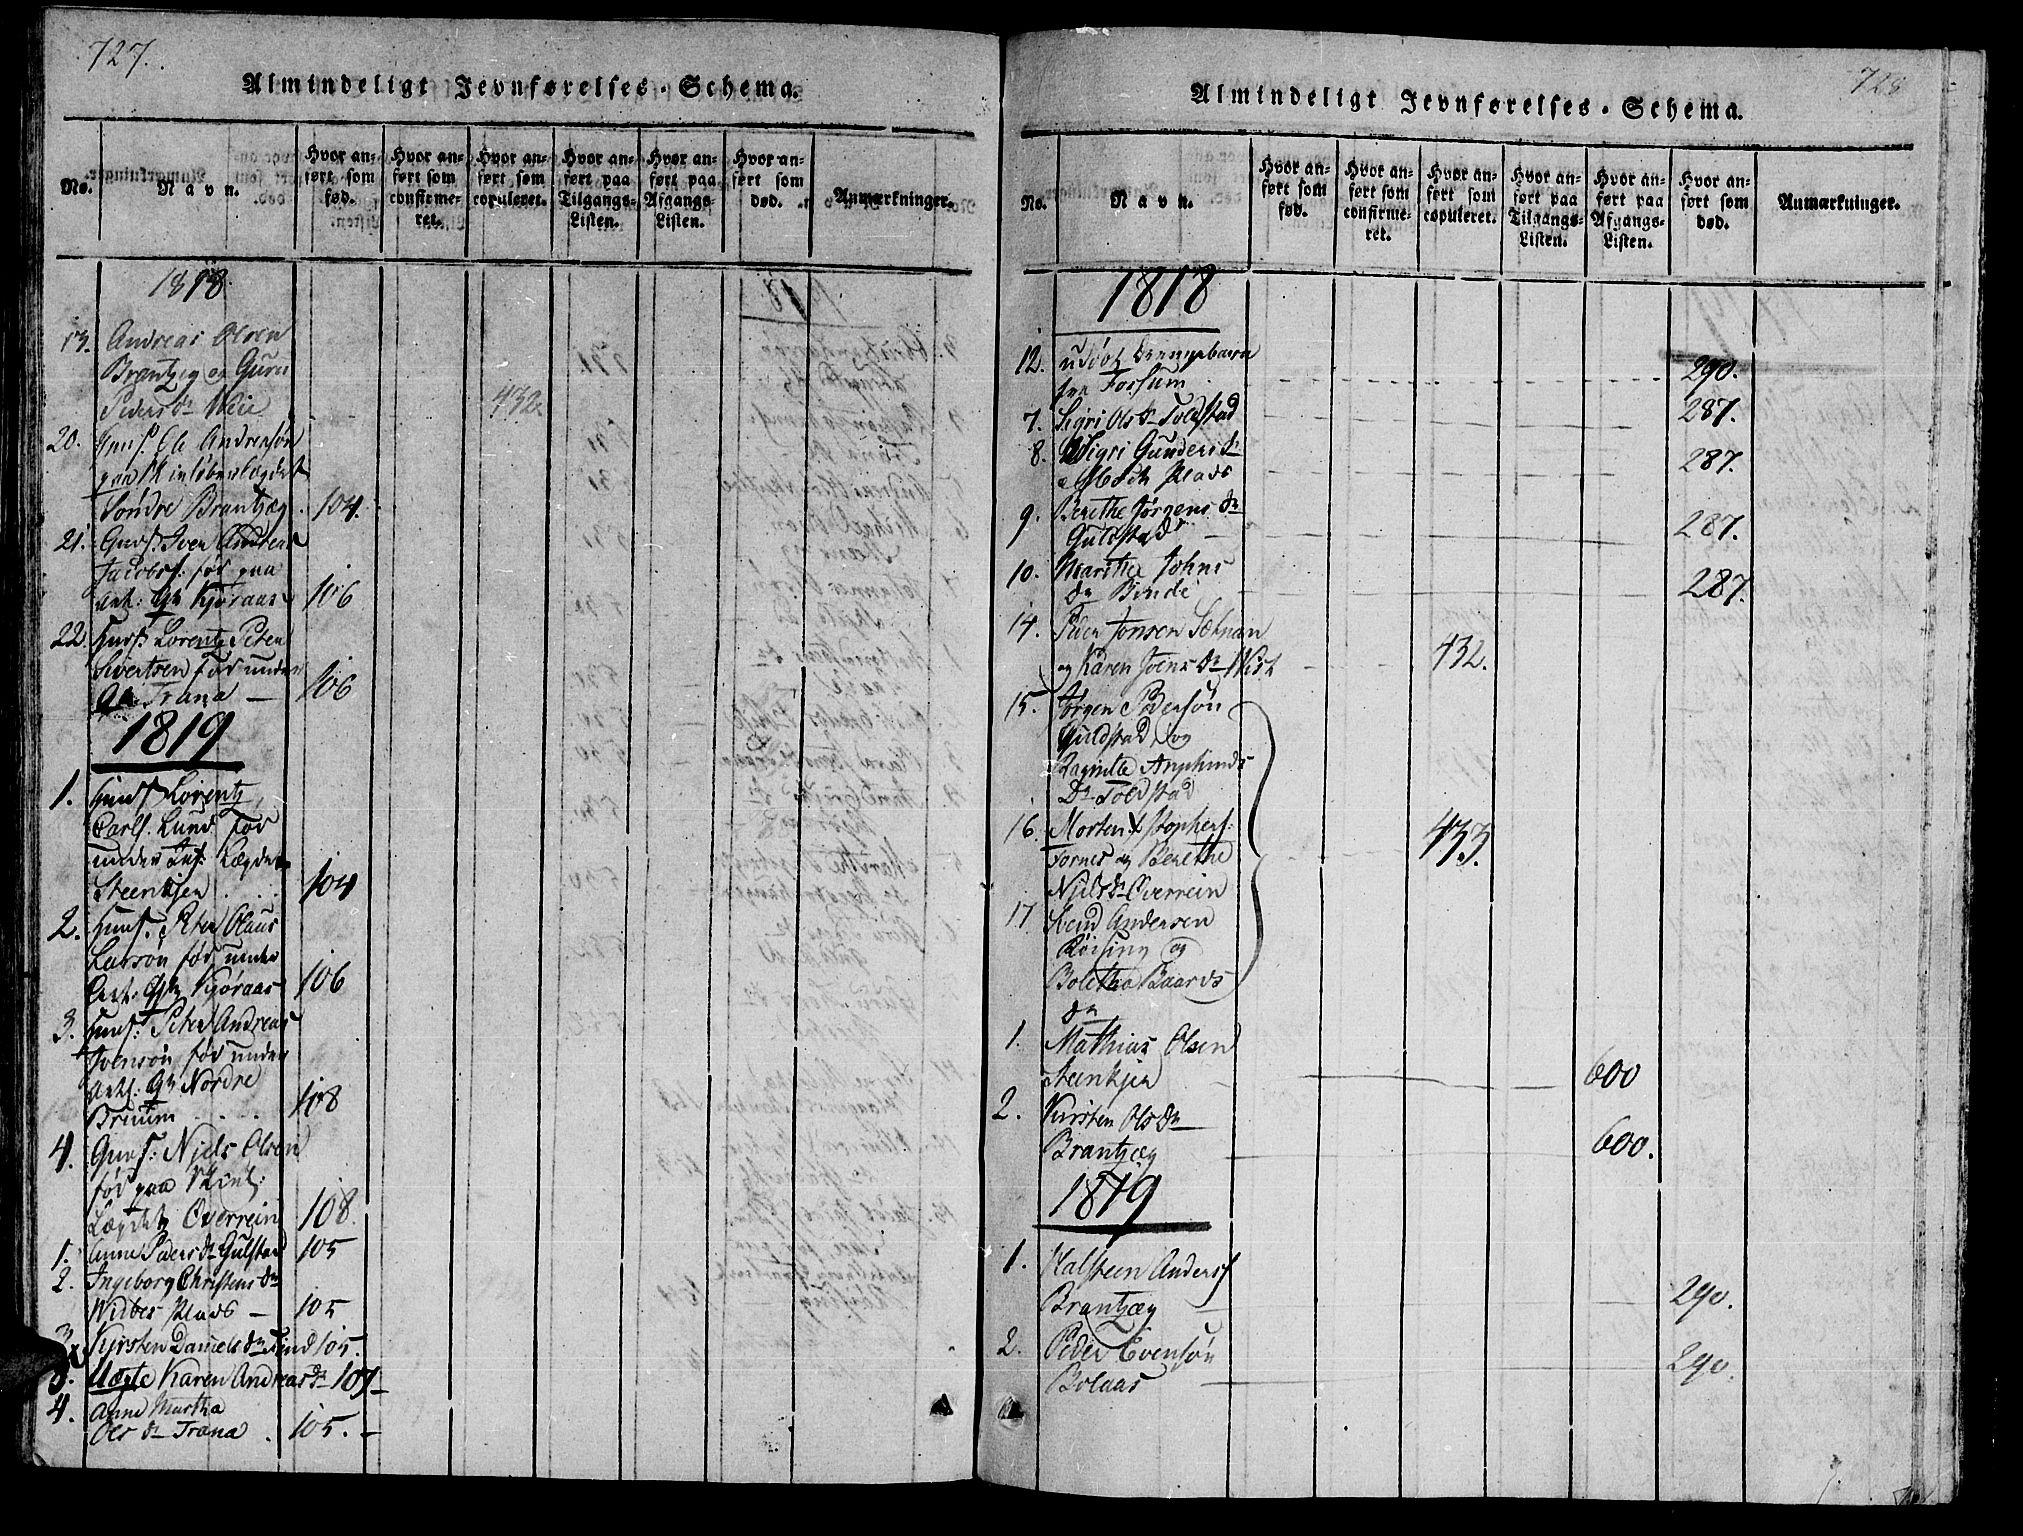 727.
Almindeligt Jevnførelses-Schema.
No.
Navn.
Hvor anført som fød.
Hvor anført som confirmeret.
Hvor anført som copuleret.
Hvor anført paa Tilgangs-Listen.
Hvor anført paa Afgangs-Listen.
Hvor anført som død.
Anmærkninger.
1818.
13. Andreas Olsen
Brantzeg og Guru
Pedersdr Weie 432.
20. Ole Andreasøn
Søndre Brantzæg. 104.
21. Iver Andreas
Jacobs. fød paa
Kjøraas 106
22. Lorentz Peter
Sivertsen fød under
Trana — 106
1819
1. Lorentz
Carls. Lund fød
under Inf: Lægdet
Steenkjer 104
2. Peter Olaus
Larsøn fød under
Kjøraas 106
3. Peter Andreas
Ivensøn fød under
Nordre
108
4. Njels Olsen
fød paa
Lægdet Overrein 108.
1. Anne Pedersdr Gulstad 105
2. Ingeborg Christens dr
Widbes Plads — 105
3. Kirsten Daniels dr 105.
Uægte Karen Andreas dr 107—
4. Anne Martha
Ols dr Trana . 105. —
728
Almindeligt Jevnførelses-Schema.
No.
Navn.
Hvor anført som fød.
Hvor anført som confirmeret.
Hvor anført som copuleret.
Hvor anført paa Tilgangs-Listen.
Hvor anført paa Afgangs-Listen.
Hvor anført som død.
Anmærkninger.
1818
12. udøbt Drengebarn
fra Forsum 290.
7. Sigri Ols dr Toldstad 287.
8. Sigri Gunders dr
Plads 287.
9. Berethe Jørgens dr
Guldstad 287.
10. Marithe Johns
dr Binde 287.
14. Peder Jonsen Sætnan
og Karen Joens dr Wist 432.
15. Jørgen Pedersøn
Guldstad, og
Ragnille
Dr Toldstad
16. Morten
Tornes og Berethe 433.
Njels dr Overrein
17. Svend Andersen
Røising og
Bolitha Baards
dr
1. Mathias Olsen
Steenkjer 600
2. Kirsten Ols dr
Brantzæg 600.
1819
1. Halsteen Anders
Brantzæg 290.
2. Peder Evensøn
Bolaas 290.